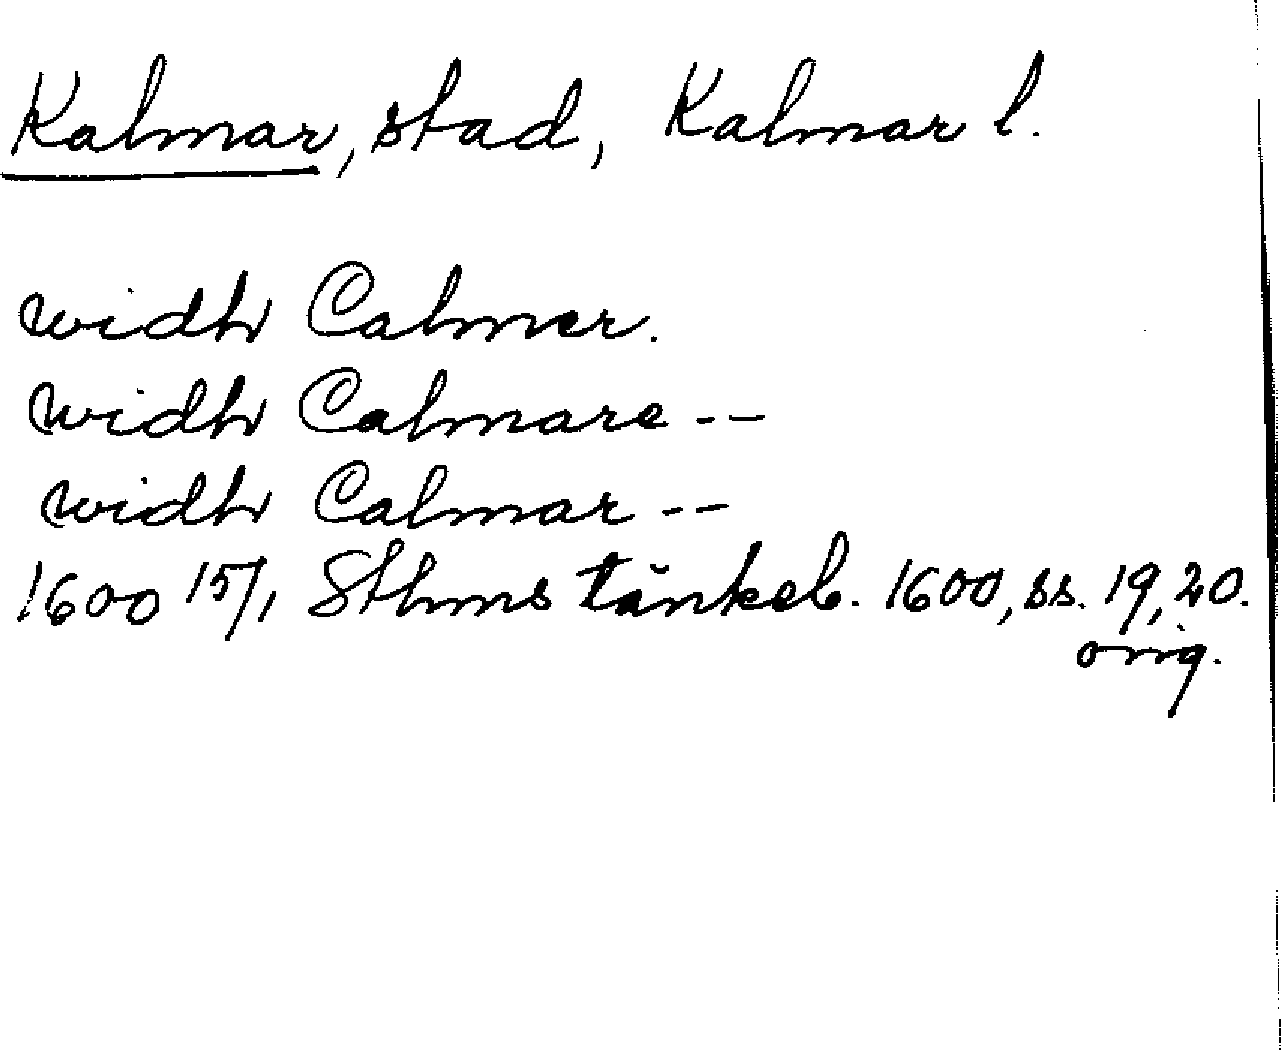 Kalmar, stad, Kalmar l.
widh Calmer.
widh Calmare --
widh Calmar --
1600 15/1 Sthms tänkeb. 1600, ss. 19, 20.
orig.